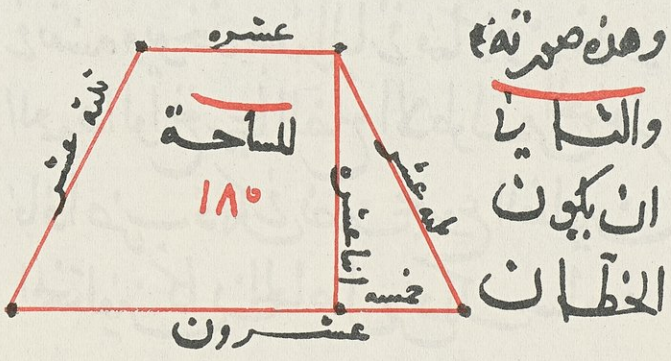 وهذه صورته
والثاني
ان يكون
الخطان
عشره
ثلثه عشر
المساحة
١٨٠
اثنا عشره
ثلثه عشر
خمسه
عشرون